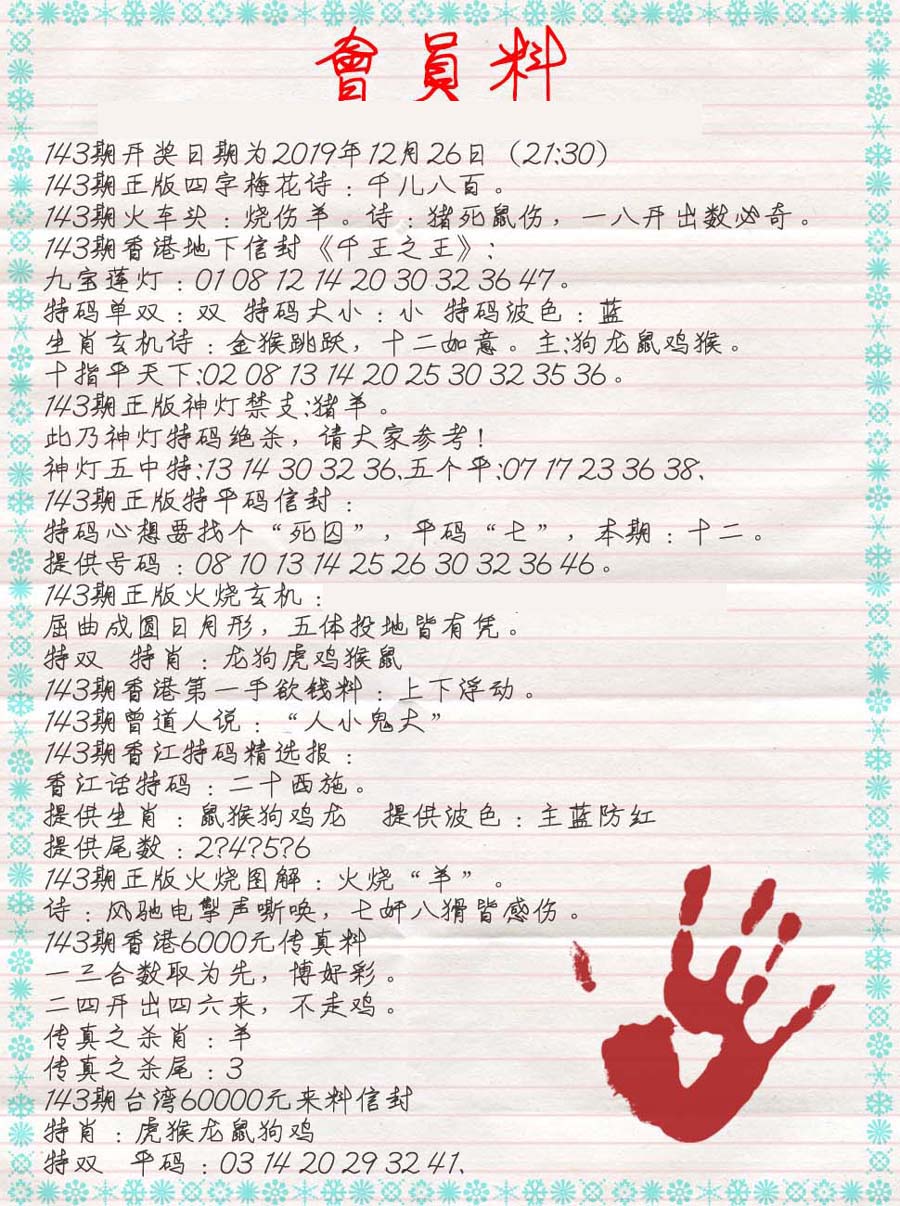 會員料
143期开奖日期为2019年12月26日（21:30）
143期正版四字梅花诗：千儿八百。
143期火车头：烧伤羊。诗：猪死鼠伤，一八开出数必奇。
143期香港地下信封《千王之王》：
九宝莲灯：01 08 12 14 20 30 32 36 47。
特码单双：双 特码大小：小 特码波色：蓝
生肖玄机诗：金猴跳跃，十二如意。主:狗龙鼠鸡猴。
十指平天下:02 08 13 14 20 25 30 32 35 36。
143期正版神灯禁支:猪羊。
此乃神灯特码绝杀，请大家参考！
神灯五中特:13 14 30 32 36、五个平:07 17 23 36 38、
143期正版特平码信封：
特码心想要找个“死囚”，平码“七”，本期：十二。
提供号码：08 10 13 14 25 26 30 32 36 46。
143期正版火烧玄机：
屈曲成圆日月形，五体投地皆有凭。
特双 特肖：龙狗虎鸡猴鼠
143期香港第一手欲钱料：上下浮动。
143期曾道人说：“人小鬼大”
143期香江特码精选报：
香江话特码：二十西施。
提供生肖：鼠猴狗鸡龙 提供波色：主蓝防红
提供尾数：2?4?5?6
143期正版火烧图解：火烧“羊”。
诗：风驰电掣声嘶唤，七奸八猾皆感伤。
143期香港6000元传真料
一三合数取为先，博好彩。
二四开出四六来，不走鸡。
传真之杀肖：羊
传真之杀尾：3
143期台湾60000元来料信封
特肖：虎猴龙鼠狗鸡
特双 平码：03 14 20 29 32 41、